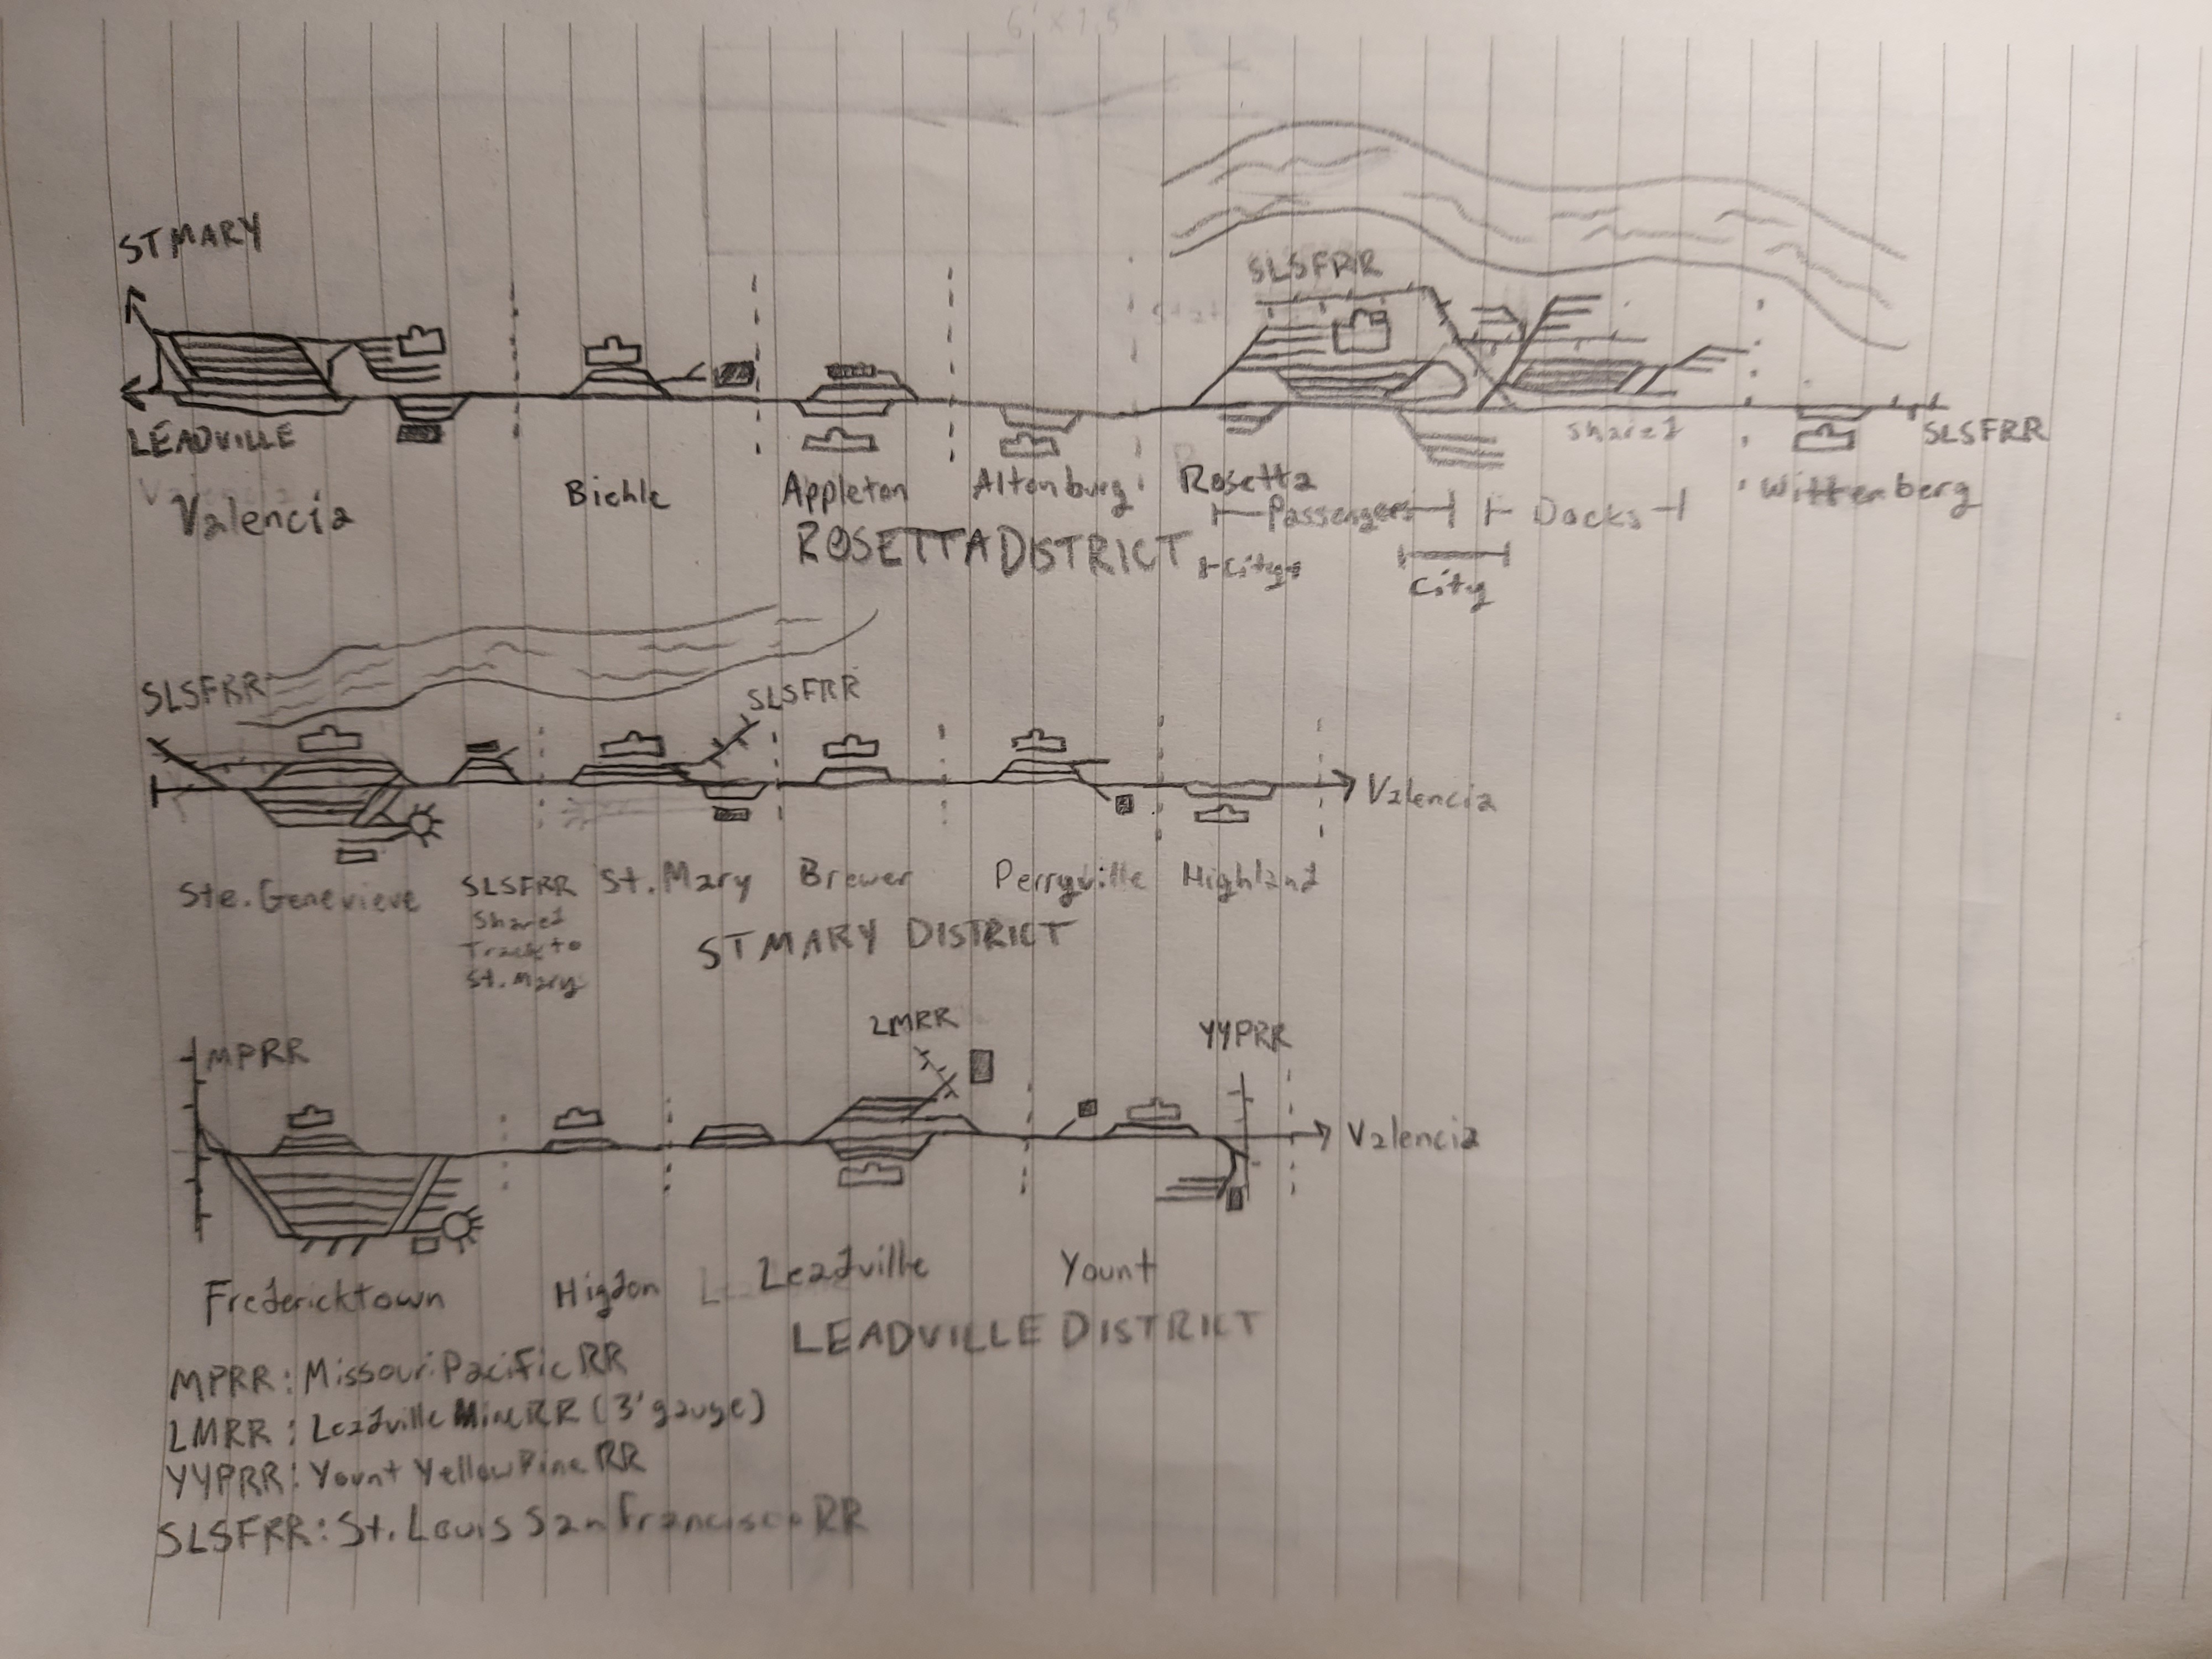 6' x 7.5"
ST MARY
SLSFRR
LEADVILLE
Shared
SLSFRR
Valencia
Biehle
Appleton
Altenburg
Rosetta
Wittenberg
Passengers
Docks
ROSETTA DISTRICT
City
City
SLSFRR
SLSFRR
Valencia
Ste. Genevieve
SLSFRR
Shared
Track to
St. Mary
St. Mary
Brewer
Perryville
Highland
ST MARY DISTRICT
MPRR
LMRR
YYPRR
Valencia
Fredericktown
Higdon
Leadville
Yount
LEADVILLE DISTRICT
MPRR: Missouri Pacific RR
LMRR: Leadville Mine RR (3' gauge)
YYPRR: Yount Yellow Pine RR
SLSFRR: St. Louis San Francisco RR